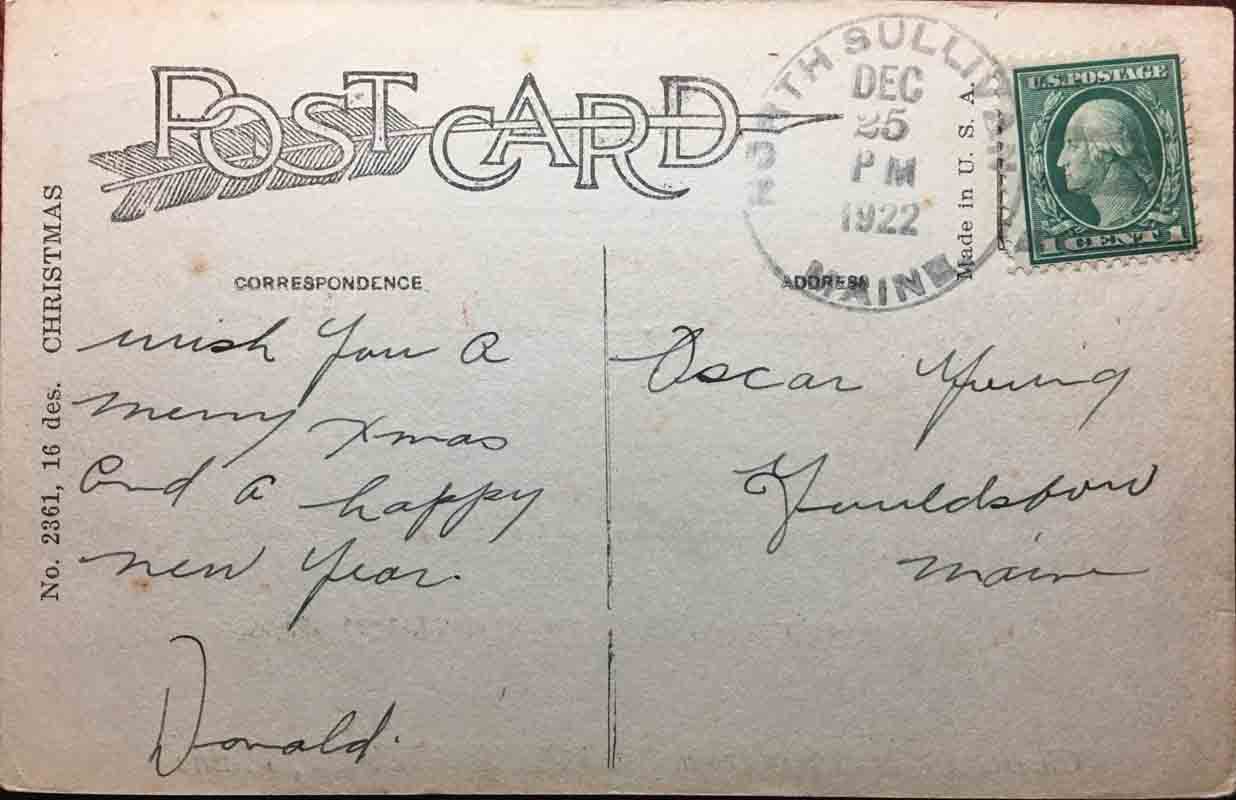 POST CARD
NORTH SULLIVAN
DEC
25
PM
1922
MAINE
U.S. POSTAGE
1 CENT 1
Made in U. S. A.
No. 2361, 16 des. CHRISTMAS
CORRESPONDENCE
wish you a
merry Xmas
and a happy
new year.
Donald.
ADDRESS
Oscar Young
Gouldsboro
Maine